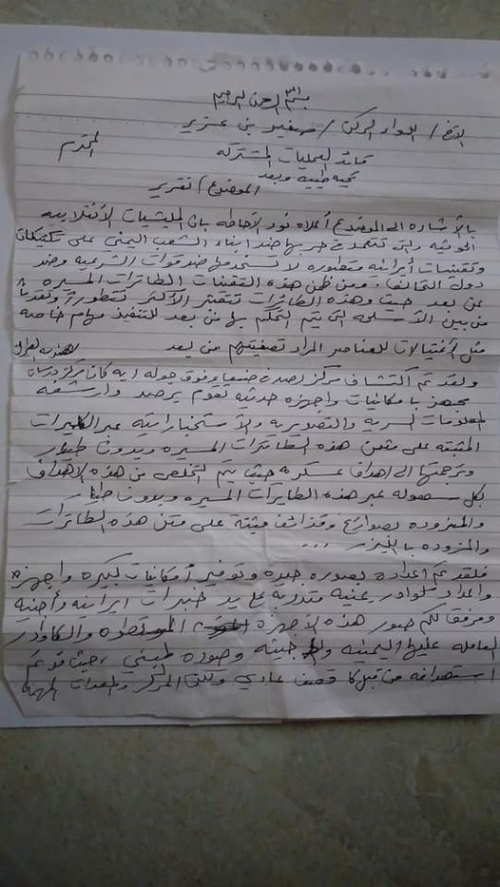 بسم الله الرحمن الرحيم
الاخ / اللواء الركن / صغير بن عزيز
قائد العمليات المشتركة المحترم
تحية طيبة وبعد
الموضوع / تقرير
بالأشارة الى الموضوع أعلاه نود الأحاطه بان المليشيات الأنقلابيه
الحوثيه والتي تعتمد في حربها ضد ابناء الشعب اليمني على تكتيكات
وتقنيات أيرانيه متطوره لا تستخدمها ضد قوات الشرعيه وضد
دول التحالف. ومن ضمن هذه التقنيات الطائرات المسيره
عن بعد حيث وهذه الطائرات تعتبر الأكثر تطورا وتعقيدا
من بين الأسلحه التي يتم التحكم بها من بعد لتنفيذ مهام خاصه
مثل أغتيالات للعناصر المراد تصفيتهم من بعد
ولقد تم اكتشاف مركز رصد في صنعاء فوق جولة ايه كان مركز
مجهز بامكانيات واجهزه حديثه يقوم برصد وارشفة
المعلومات السريه والتصويريه والأستخباراتيه عبر الكاميرات
المثبته على متن هذه الطائرات المسيره وبدون طيار
وترجمتها الى اهداف عسكريه حيث يتم التخلص من هذه الاهداف
بكل سهوله عبر هذه الطايرات المسيره وبدون طيار
والمزوده بصواريخ وقذائف مثبته على متن هذه الطائرات
والمزوده بالليزر ...
فلقد تم أعداده بصوره جيده وتوفير أمكانيات كبيره واجهزه
واعداد كوادر يمنيه متدربه على يد خبراء ايرانيه وأجنبيه
ومرفق لكم صور هذه الأجهزه المتطوره والكوادر
العامله عليها اليمنيه والاجنبيه وصوره للمبنى، حيث قد تم
استهدافه من قبل كا قصف عادي ولكن المركز والمعدات المهمة